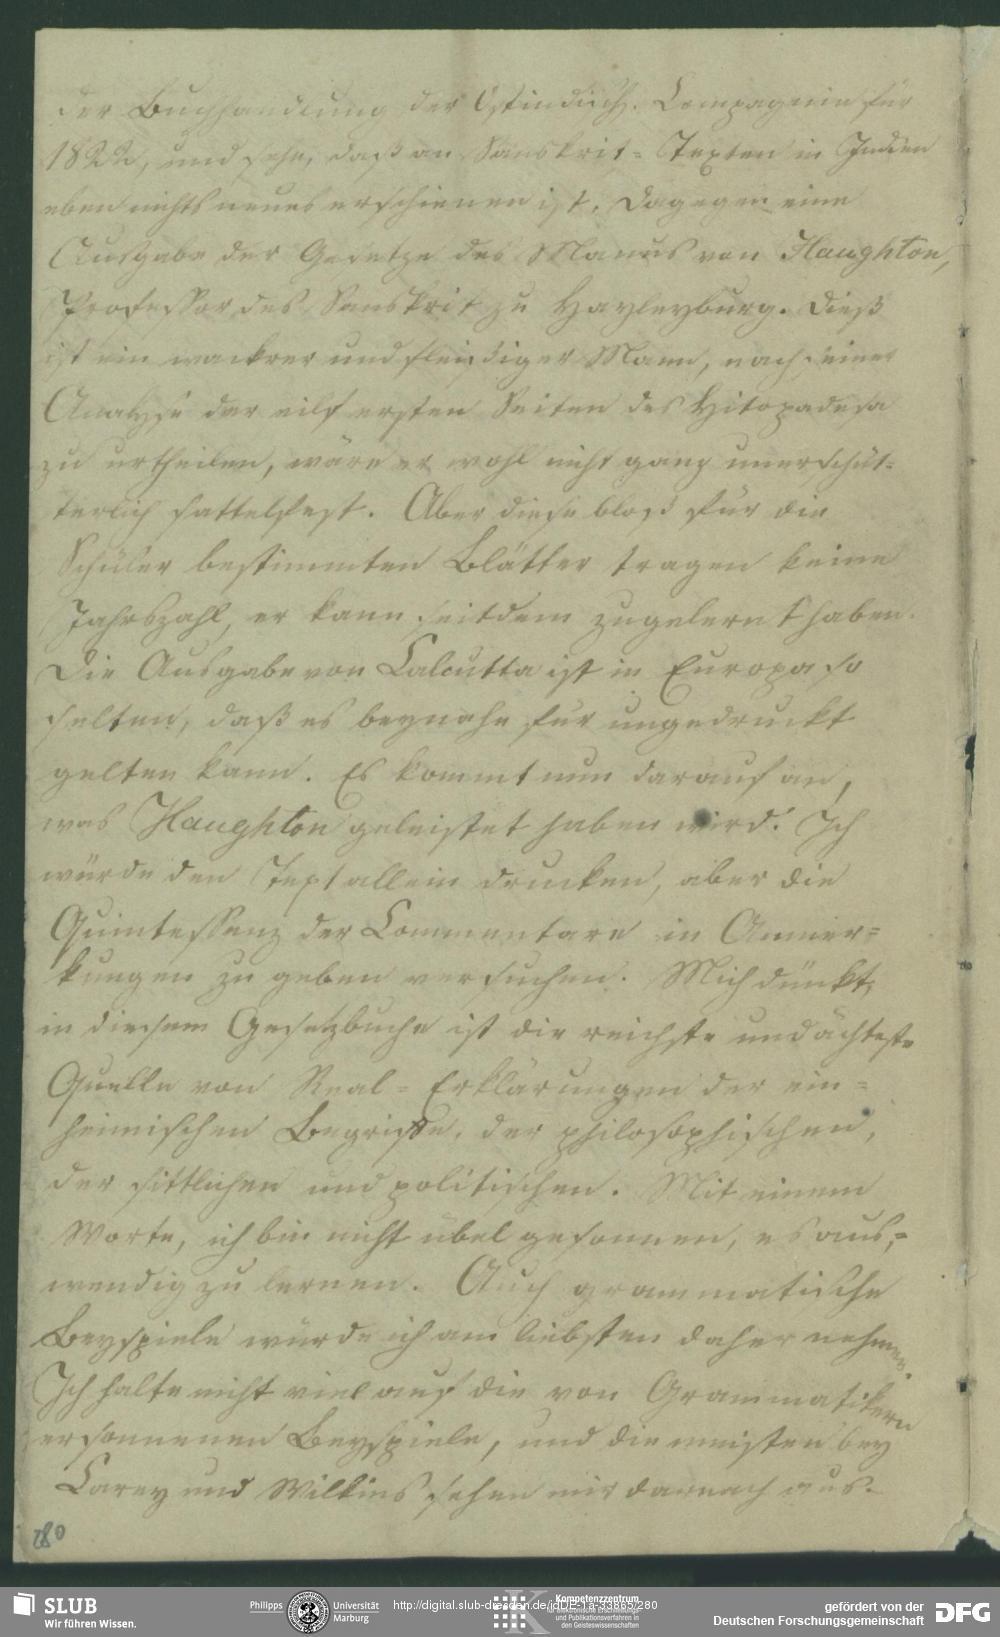 der Buchhandlung der Ostindisch. Compagnie für
1822, und sehe, daß an Sanskrit= Texten in Indien
eben nichts neues erschienen ist. Dagegen eine
Ausgabe der Gesetze des Manus von Haughton,
Professor des Sanskrit zu Hayleyburg. Dieß
ist ein wackrer und fleißiger Mann, nach seiner
Analyse der eilf ersten Seiten des Hitopadesa
zu urtheilen, wäre er wohl nicht ganz unerschüt=
terlich sattelfest. Aber diese bloß für die
Schüler bestimmten Blätter tragen keine
Jahrszahl, er kann seitdem zugelernt haben.
Die Ausgabe von Calcutta ist in Europa so
selten, daß es beynahe für ungedruckt
gelten kann. Es kommt nun darauf an,
was Haughton geleistet haben wird. Ich
würde den Text allein drucken, aber die
Quintessenz der Commentare in Anmer=
kungen zu geben versuchen. Mich dünkt,
in diesem Gesetzbuche ist die reichste und ächteste
Quelle von Real= Erklärungen der ein=
heimischen Begriffe, der philosophischen,
der sittlichen und politischen. Mit einem
Worte, ich bin nicht übel gesonnen, es aus=
wendig zu lernen. Auch grammatische
Beyspiele würde ich am liebsten daher nehmen.
Ich halte nicht viel auf die von Grammatikern
ersonnenen Beyspiele, und die meisten bey
Carey und Wilkins sehen mir darnach aus.
180
SLUB
Wir führen Wissen.
Philipps Universität
Marburg
http://digital.slub-dresden.de/idDE-1a-33865/280
Kompetenzzentrum
für elektronische Erschließungs-
und Publikationsverfahren in
den Geisteswissenschaften
gefördert von der
Deutschen Forschungsgemeinschaft
DFG